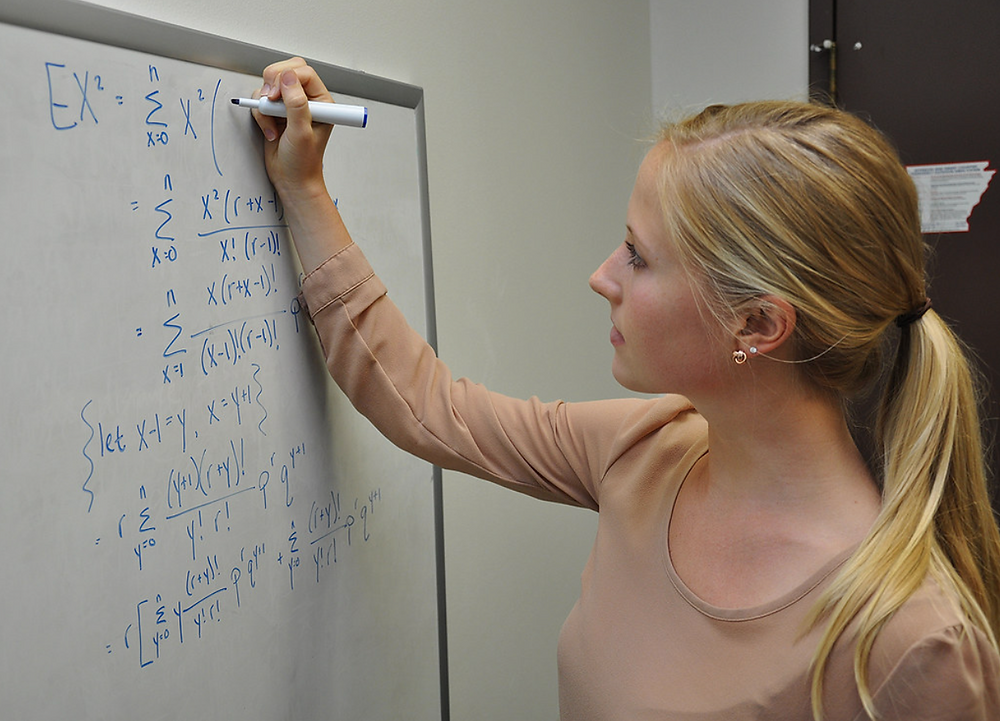 EX² = Σ_{x=0}^{n} x² (
= Σ_{x=0}^{n} x²(r+x-1) / x!(r-1)! x
= Σ_{x=1}^{n} x(r+x-1)! / (x-1)!(r-1)! p
{let x-1=y, x=y+1}
= r Σ_{y=0}^{n} (y+1)(r+y)! / y! r! p^r q^{y+1}
= r[ Σ_{y=0}^{n} y (r+y)! / y! r! p^r q^{y+1} + Σ_{y=0}^{n} (r+y)! / y! r! p^r q^{y+1}